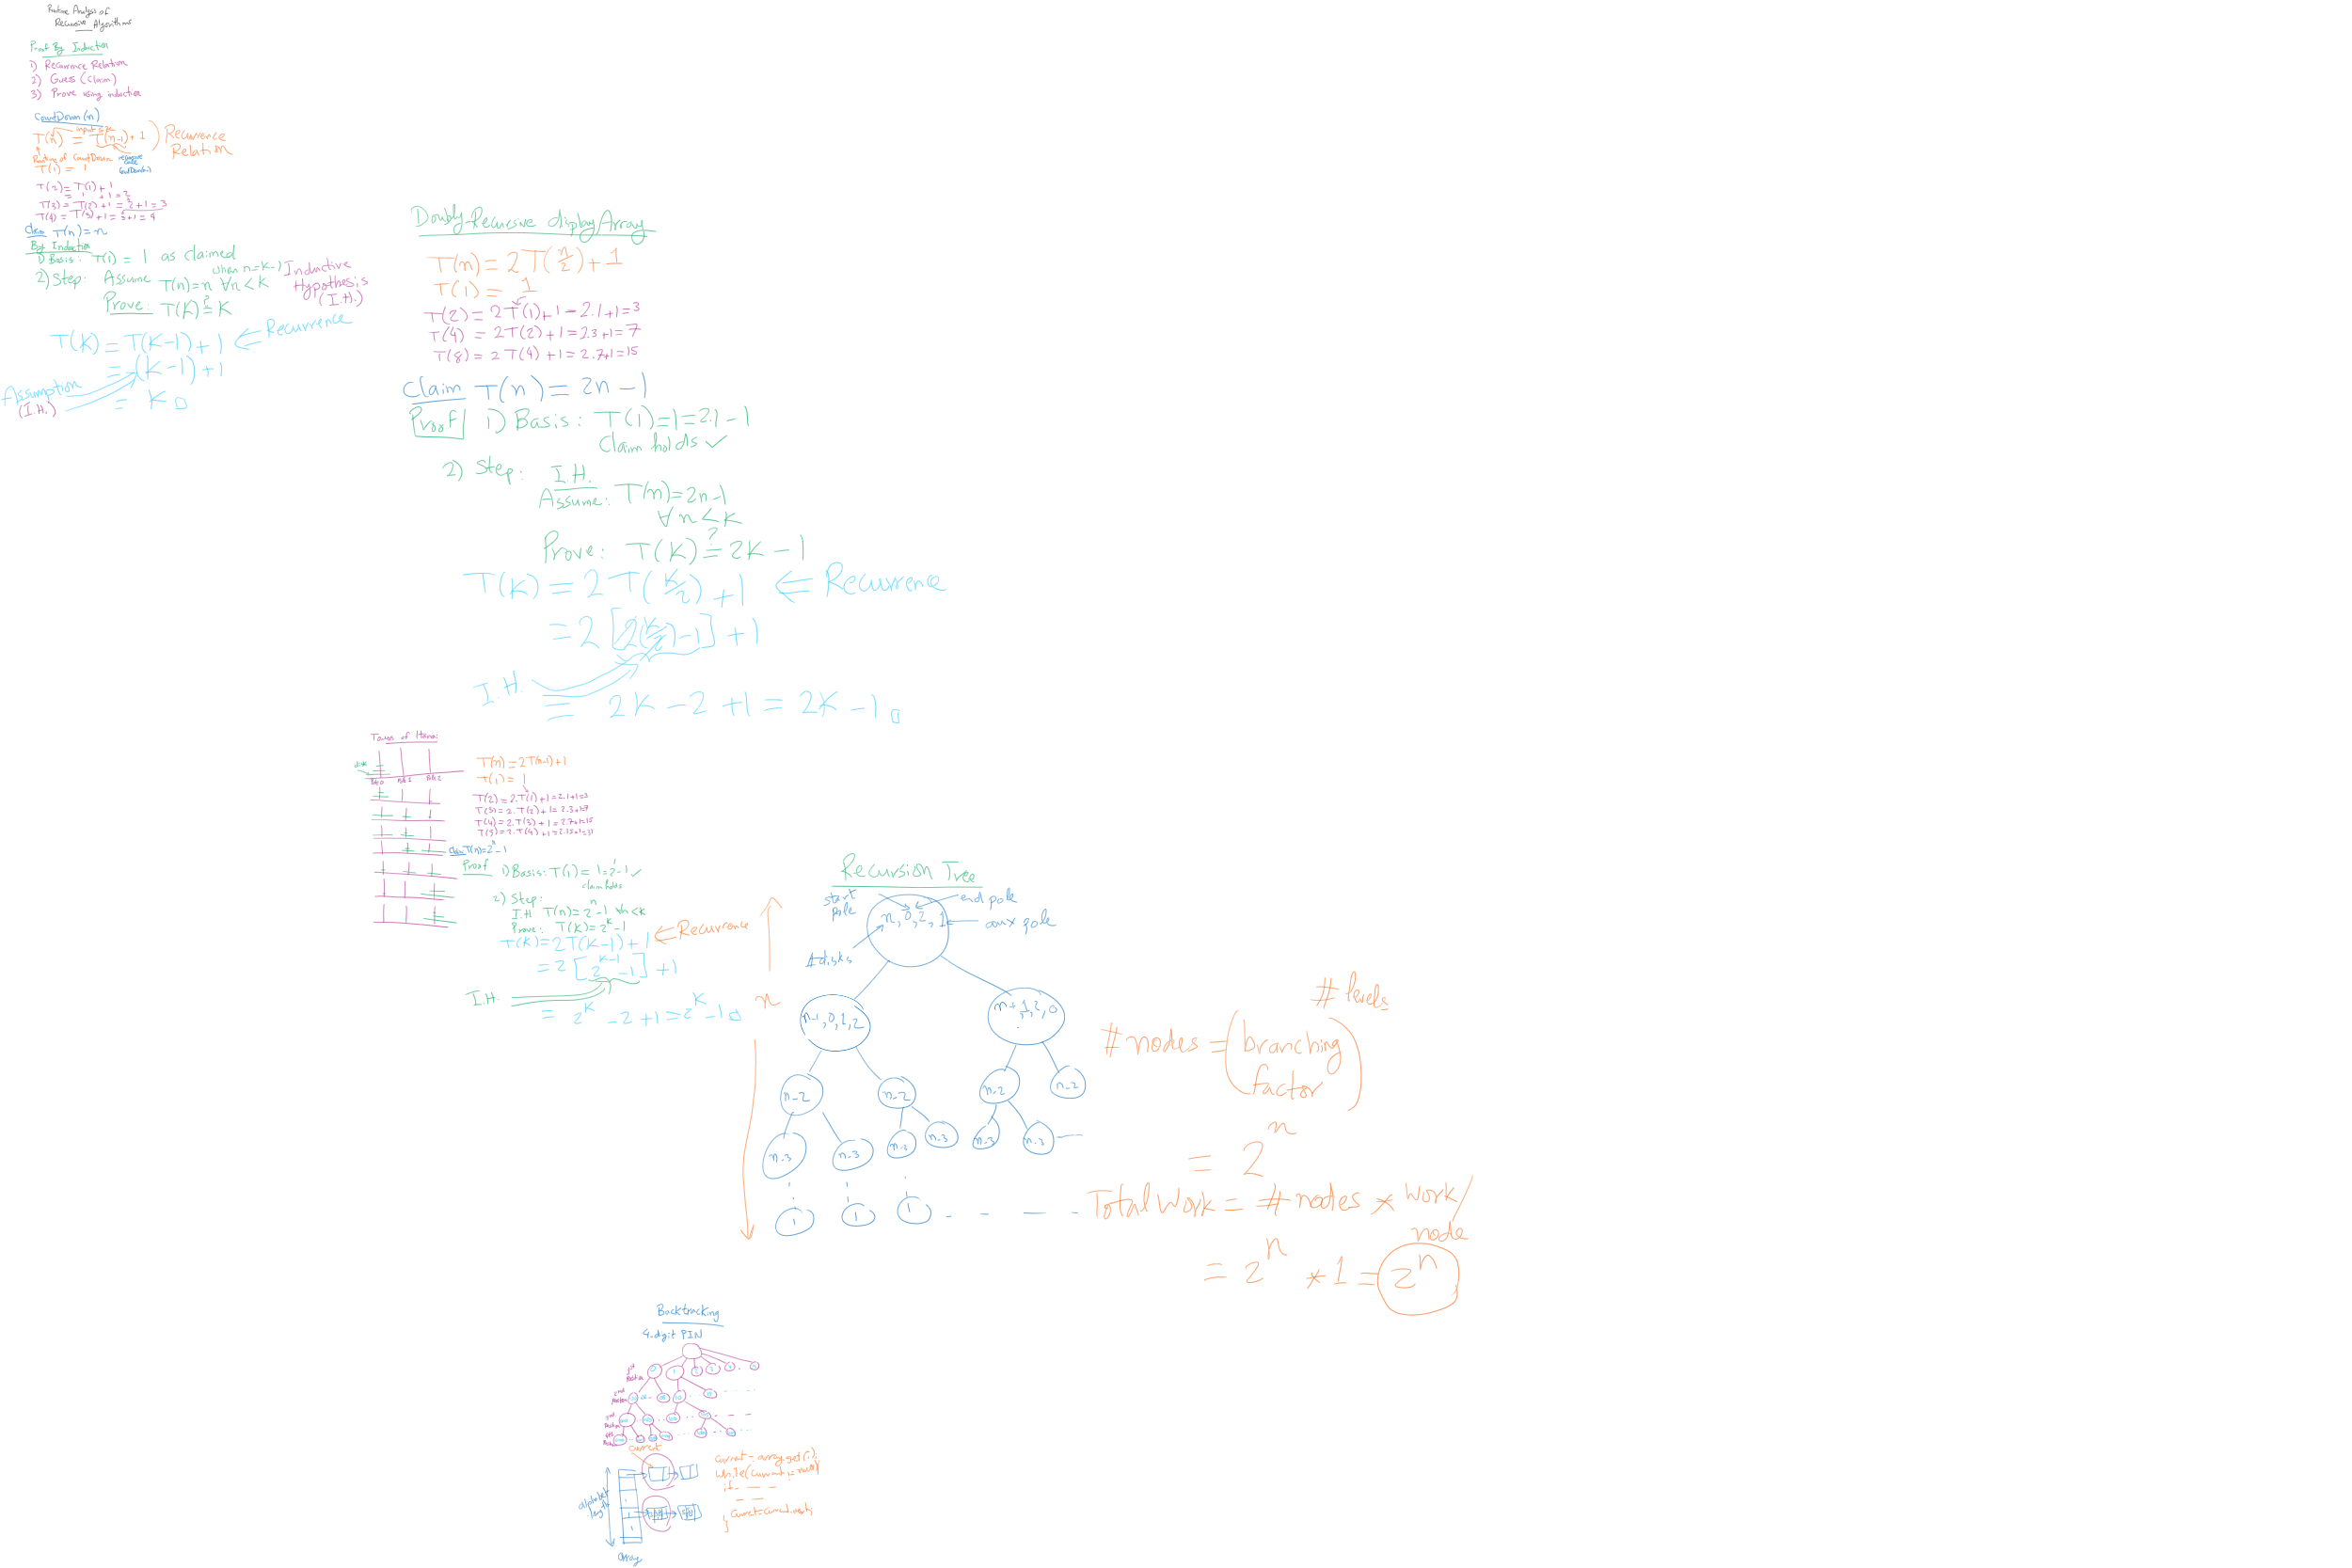 Runtime Analysis of
Recursive Algorithms
Proof By Induction
1) Recurrence Relation
2) Guess (claim)
3) Prove using induction
CountDown(n)
input size
T(n) = T(n-1) + 1
Recurrence
Relation
Runtime of CountDown
recursive
call
CountDown(n-1)
T(1) = 1
T(2) = T(1) + 1
= 1 + 1 = 2
T(3) = T(2) + 1 = 2+1 = 3
T(4) = T(3) + 1 = 3+1 = 4
Claim T(n) = n
By Induction
1) Basis: T(1) = 1 as claimed
2) Step: Assume T(n)=n ∀n<k
when n=k-1
Inductive
Hypothesis
(I.H.)
Prove: T(k) ?= k
T(k) = T(k-1) + 1 ⇐ Recurrence
= (k-1) + 1
Assumption
(I.H.)
= k □
Doubly-Recursive displayArray
T(n) = 2T(n/2) + 1
T(1) = 1
T(2) = 2T(1)+1 = 2.1+1=3
T(4) = 2T(2)+1=2.3+1=7
T(8) = 2T(4)+1=2.7+1=15
Claim T(n) = 2n - 1
Proof 1) Basis: T(1)=1=2.1-1
Claim holds ✓
2) Step: I.H.
Assume: T(n)=2n-1
∀n<k
Prove: T(k) ?= 2k-1
T(k) = 2T(k/2) + 1 ⇐ Recurrence
= 2[2(k/2)-1] + 1
I.H.
= 2k-2+1 = 2k-1 □
Towers of Hanoi
disk
Pole 0 Pole 1 Pole 2
T(n) = 2T(n-1)+1
T(1) = 1
T(2) = 2.T(1)+1=2.1+1=3
T(3) = 2.T(2)+1=2.3+1=7
T(4) = 2.T(3)+1=2.7+1=15
T(5) = 2.T(4)+1=2.15+1=31
Claim T(n)=2^n-1
Proof 1) Basis: T(1)=1=2^1-1 ✓
claim holds
2) Step:
I.H T(n)=2^n-1 ∀n<k
Prove: T(k)=2^k-1
T(k)=2T(k-1)+1 ⇐ Recurrence
= 2[2^k-1 - 1] + 1
I.H.
= 2^k-2+1=2^k-1 □
Recursion Tree
start
pole
end pole
n, 0, 2, 1
aux pole
#disks
n
n-1, 0, 1, 2
n-1, 1, 2, 0
n-2 n-2 n-2 n-2
n-3 n-3 n-3 n-3 n-3 n-3
1 1 1
# levels
# nodes = (branching
factor)
= 2^n
Total Work = # nodes * work/
node
= 2^n * 1 = 2^n
Backtracking
4-digit PIN
1st
Position
0 1 2 3
2nd
Position
3rd
Position
4th
Position
current
alphabet
length
array
current = array.get(i);
while(current != null){
if - - -
current=current.next;
}